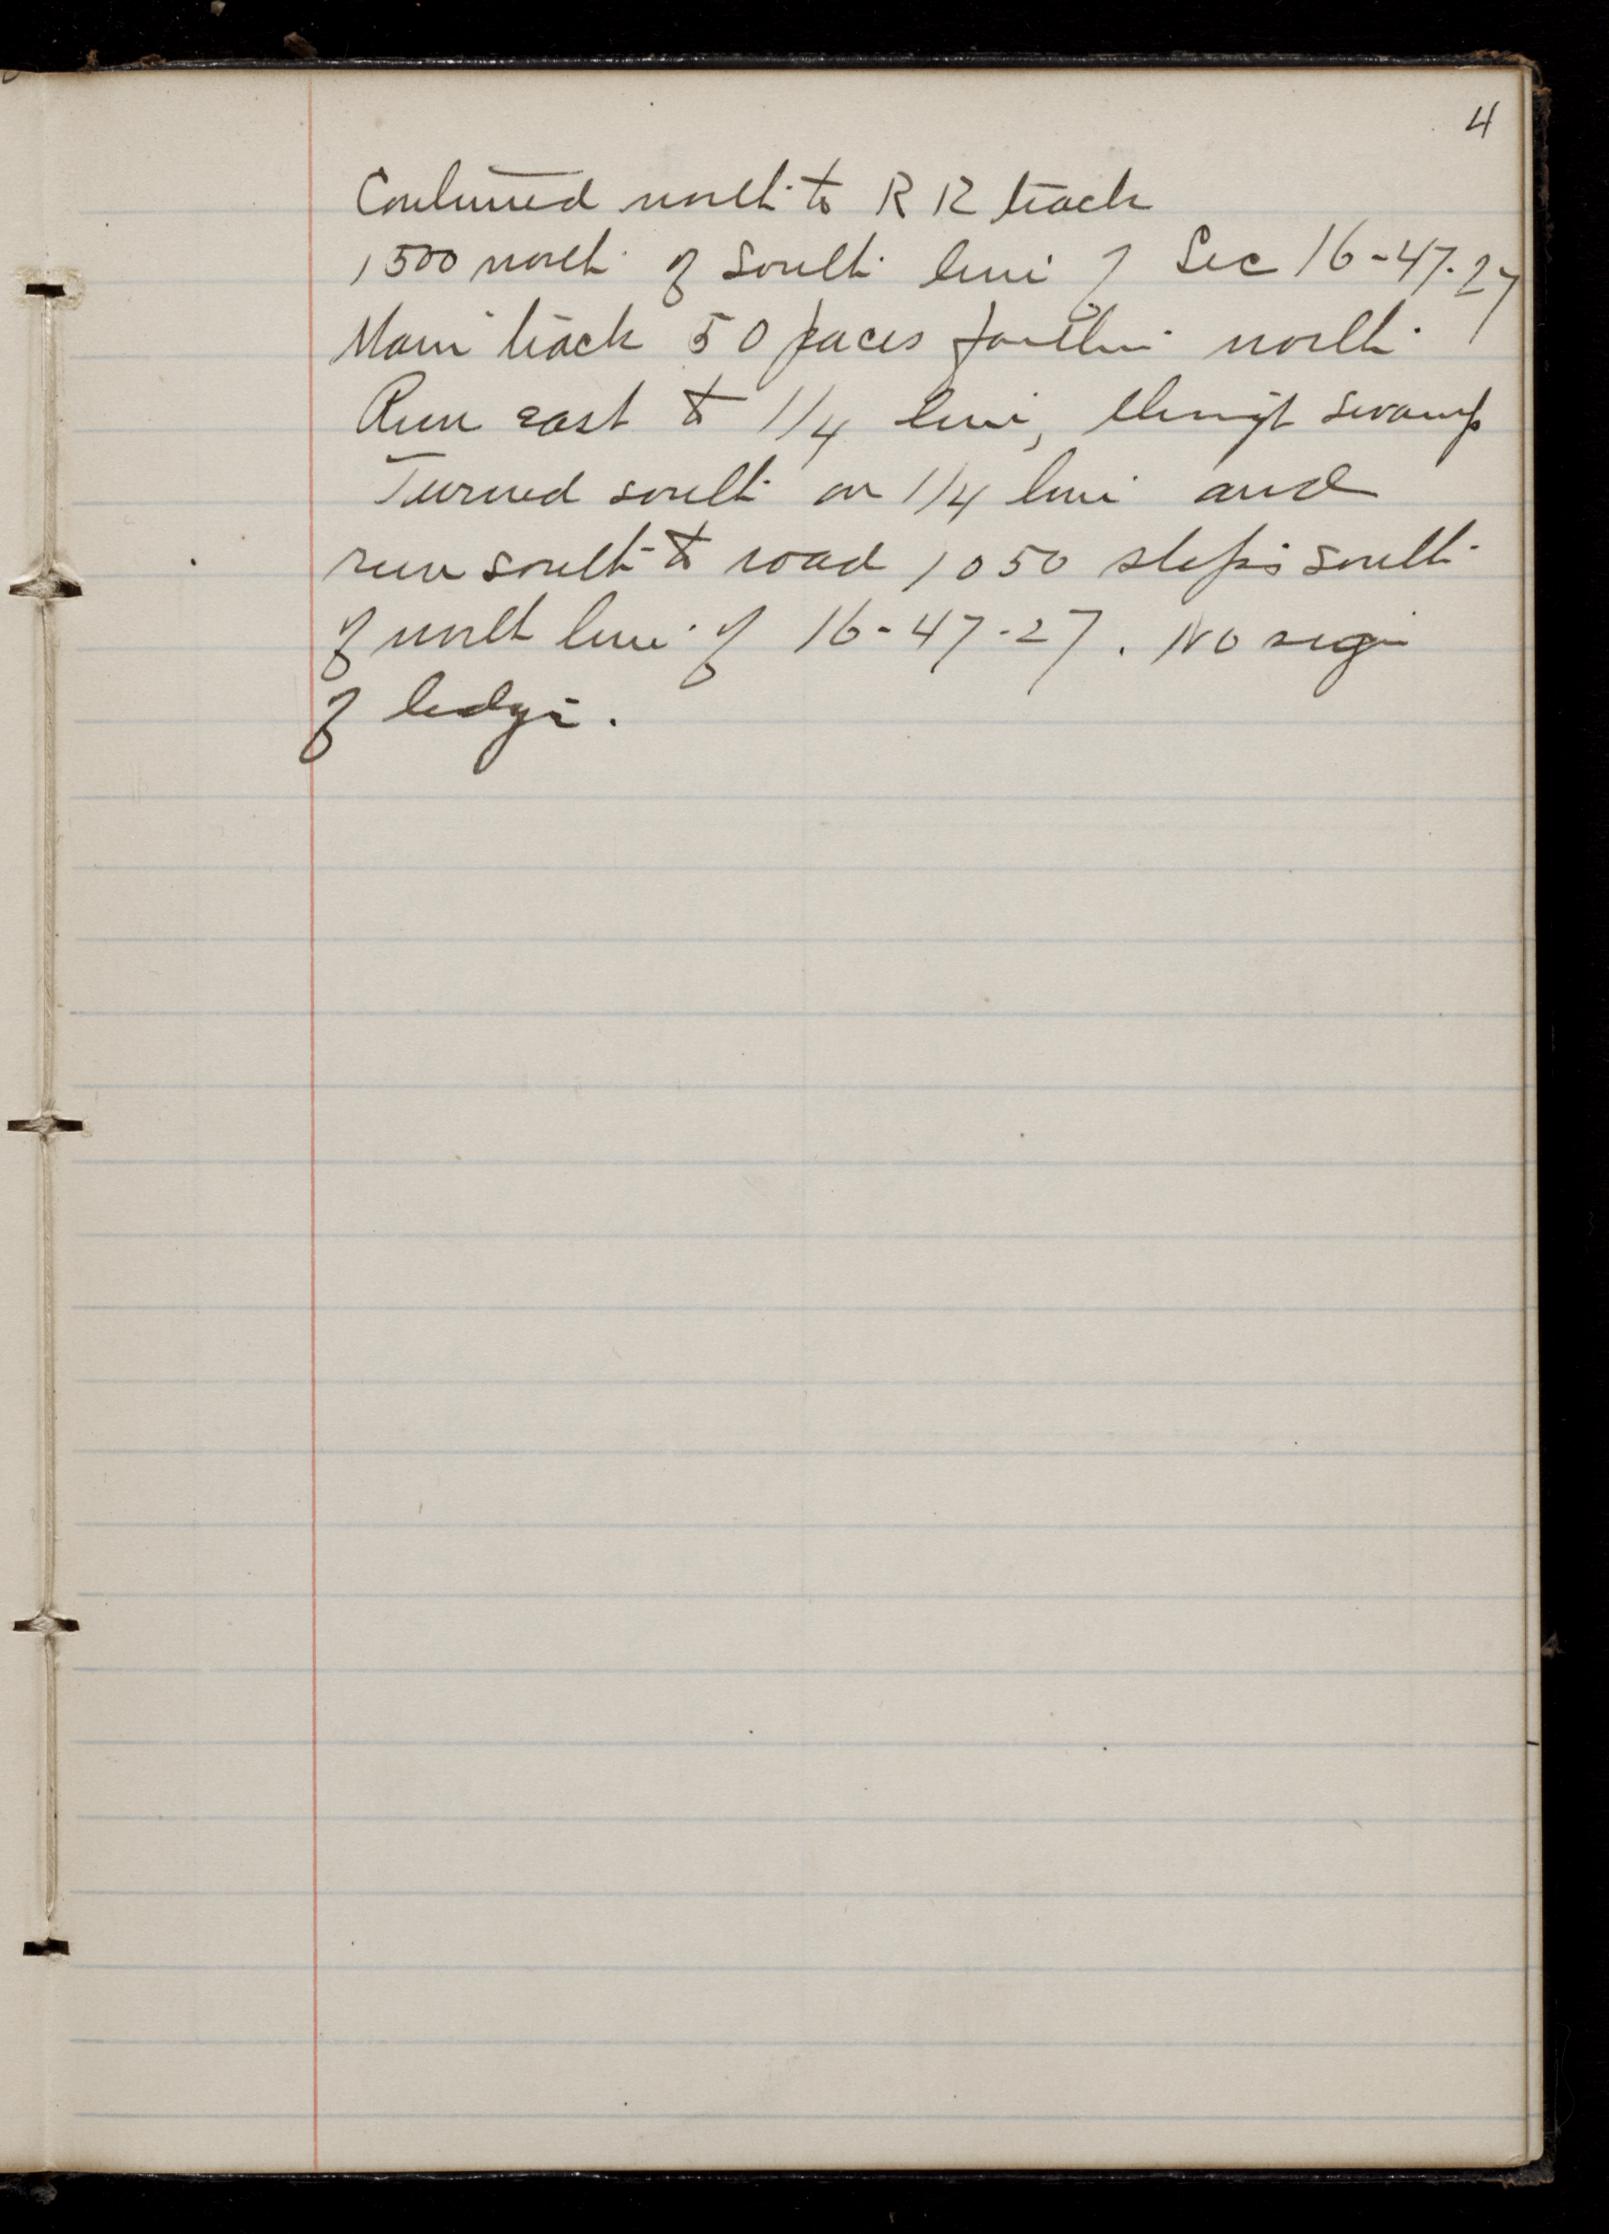 4
Continued north to R R track
1500 north of South line of Sec 16-47-27
Main track 50 paces farther north
Run east to 1/4 line, through swamp
Turned south on 1/4 line and
run south to road 1050 steps south
of north line of 16-47-27. No sign
of ledge.